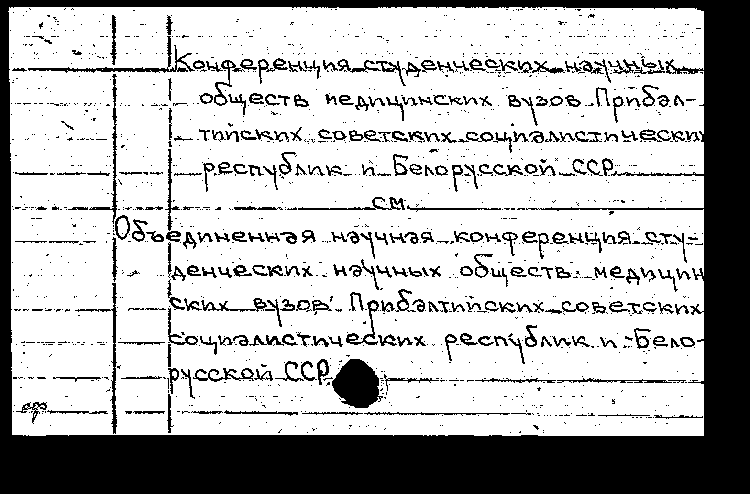 Конференция студенческих научных
обществ медицинских вузов Прибал-
тийских советских социалистических
республик и Белорусской ССР
см.
Объединенная научная конференция сту-
денческих научных обществ медицин
ских вузов Прибалтийских советских
социалистических республик и Бело-
русской ССР